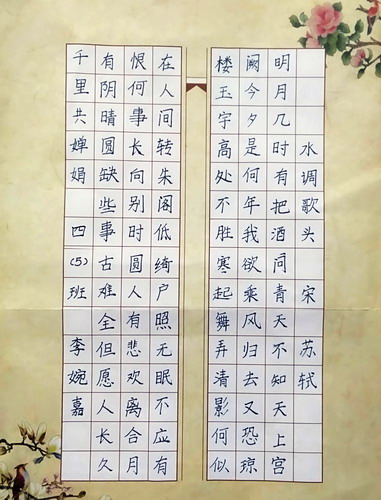 水调歌头 宋 苏轼
明月几时有把酒问青天不知天上宫
阙今夕是何年我欲乘风归去又恐琼
楼玉宇高处不胜寒起舞弄清影何似
在人间转朱阁低绮户照无眠不应有
恨何事长向别时圆人有悲欢离合月
有阴晴圆缺些事古难全但愿人长久
千里共婵娟 四(5)班 李婉嘉